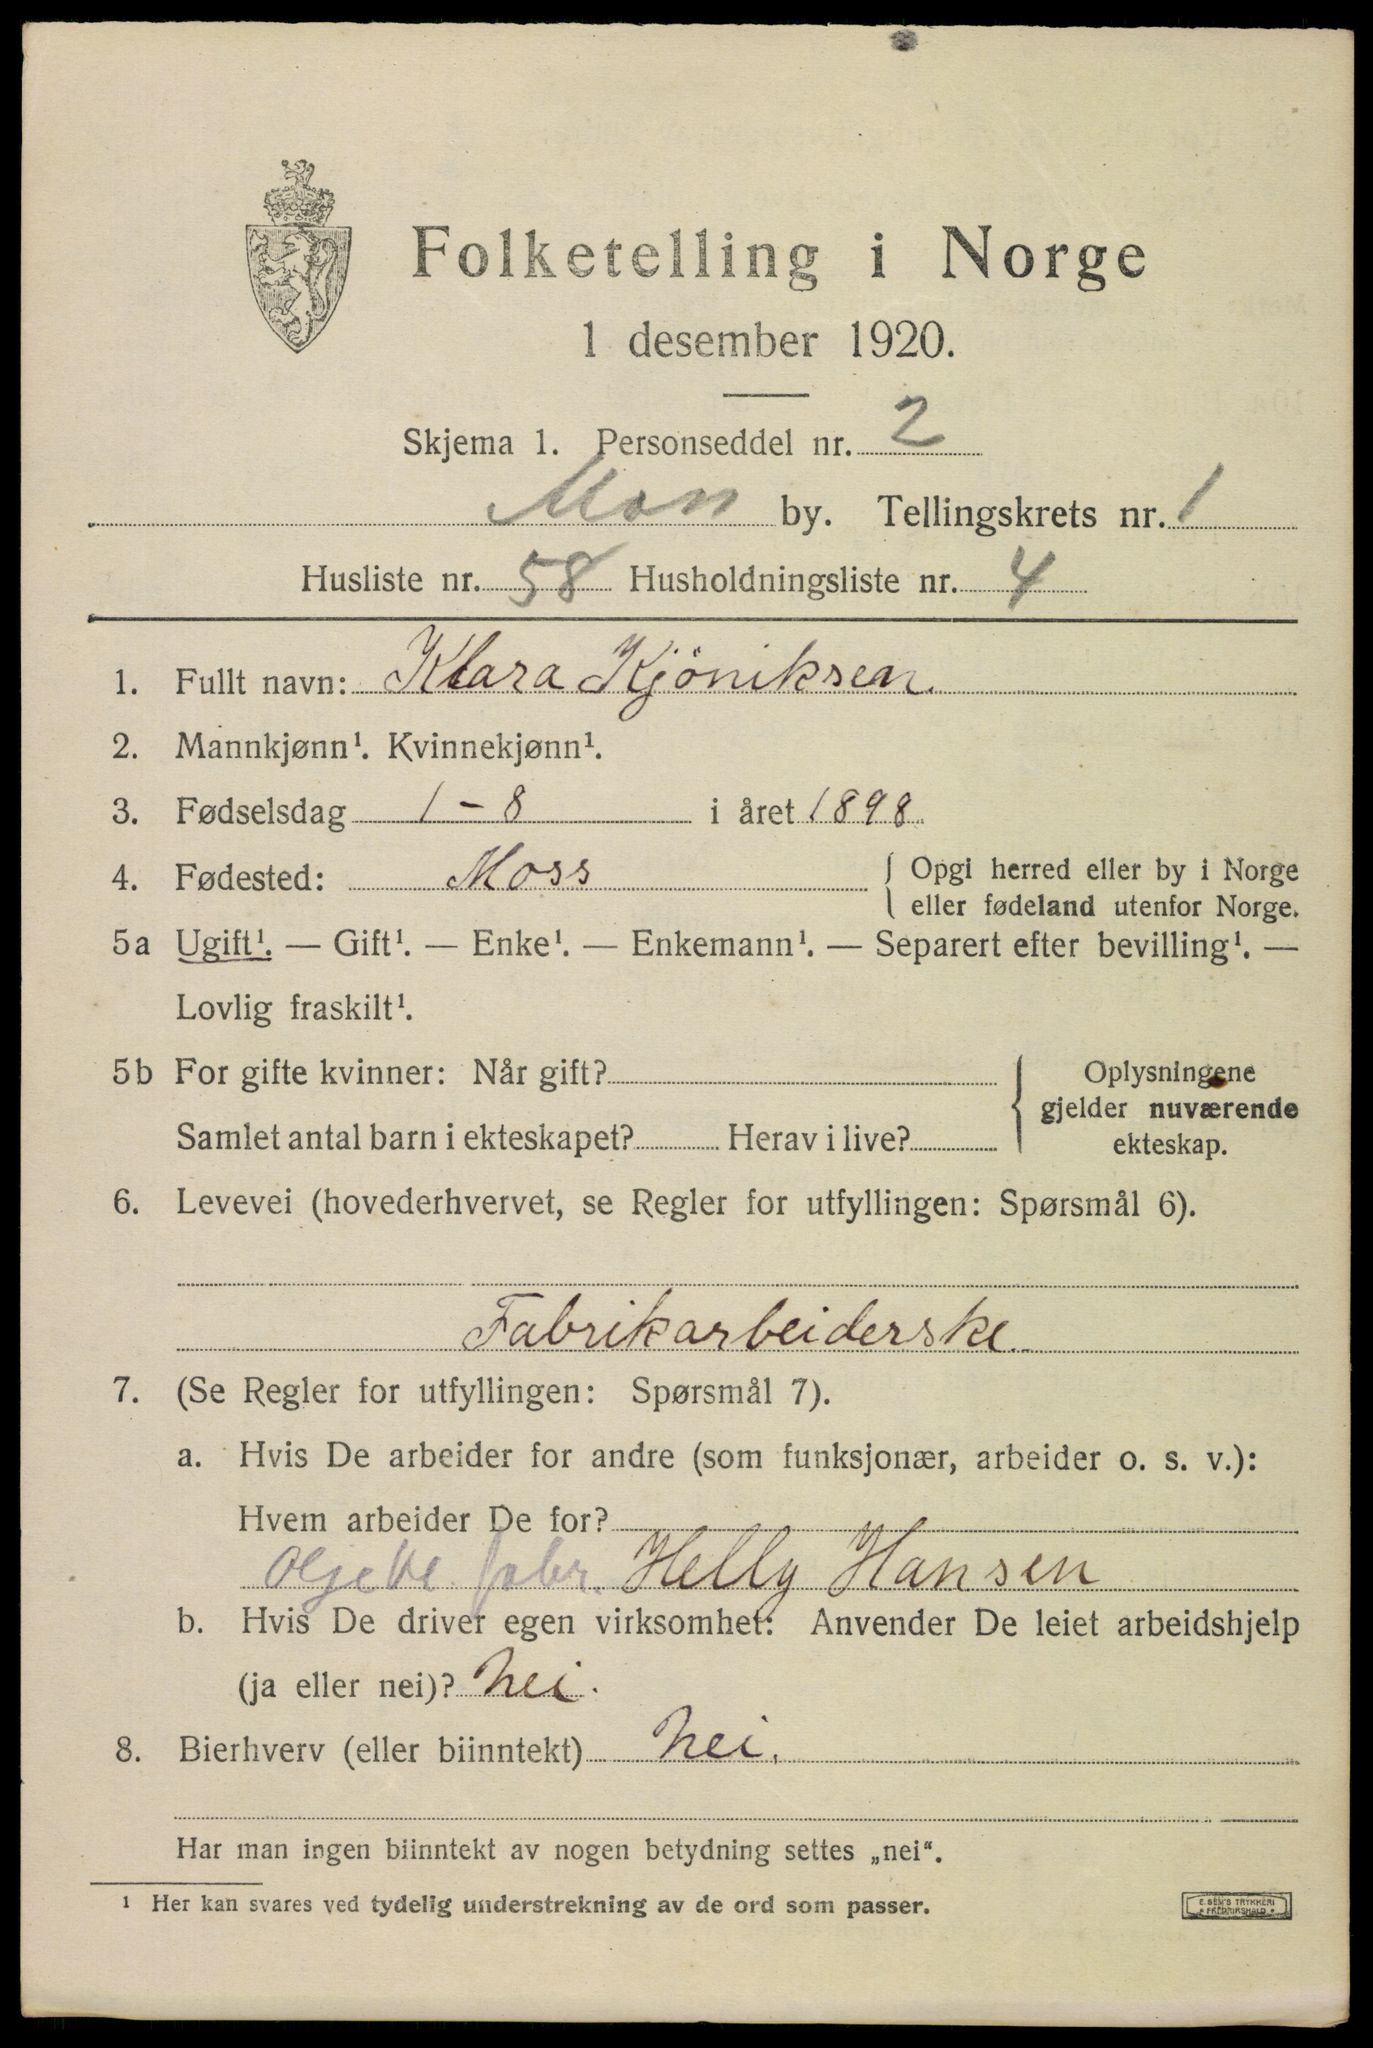 Folketelling i Norge
1 desember 1920.
Skjema 1. Personseddel nr. 2
Moss by. Tellingskrets nr. 1
Husliste nr. 58 Husholdningsliste nr. 4
1. Fullt navn: Klara Kjöniksen.
2. Mannkjønn¹. Kvinnekjønn¹.
3. Fødselsdag 1-8 i året 1898
4. Fødested: Moss { Opgi herred eller by i Norge
eller fødeland utenfor Norge.
5a Ugift¹. — Gift¹. — Enke¹. — Enkemann¹. — Separert efter bevilling¹. —
Lovlig fraskilt¹.
5b For gifte kvinner: Når gift? { Oplysningene
gjelder nuværende
Samlet antal barn i ekteskapet? Herav i live? ekteskap.
6. Levevei (hovederhvervet, se Regler for utfyllingen: Spørsmål 6).
Fabrikarbeiderske.
7. (Se Regler for utfyllingen: Spørsmål 7).
a. Hvis De arbeider for andre (som funksjonær, arbeider o. s. v.):
Hvem arbeider De for?
fabr. Helly Hansen
b. Hvis De driver egen virksomhet: Anvender De leiet arbeidshjelp
(ja eller nei)? nei.
8. Bierhverv (eller biinntekt) nei.
Har man ingen biinntekt av nogen betydning settes „nei“.
¹ Her kan svares ved tydelig understrekning av de ord som passer.
E. SEM'S TRYKKERI
• FREDRIKSHALD •